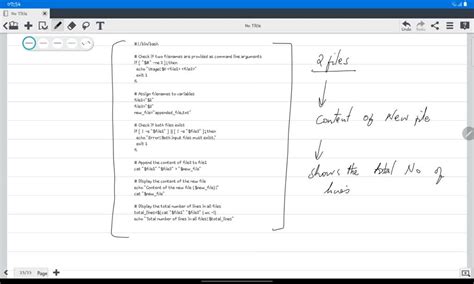 No Title
No Title
Undo
Redo
#!/bin/bash
# Check if two filenames are provided as command line arguments
if [ "$#" -ne 2 ];then
echo "Usage: $0 <file1> <file2>"
exit 1
fi
# Assign filenames to variables
file1="$1"
file2="$2"
new_file="appended_file.txt"
# Check if both files exist
if [ ! -e "$file1" ] || [ ! -e "$file2" ];then
echo "Error: Both input files must exist."
exit 1
fi
# Append the content of file2 to file1
cat "$file1" "$file2" > "$new_file"
# Display the content of the new file
echo "Content of the new file ($new_file):"
cat "$new_file"
# Display the total number of lines in all files
total_lines=$(cat "$file1" "$file2" | wc -l)
echo "Total Number of lines in all files: $total_lines"
2 files
Content of New file
shows the total No of
lines